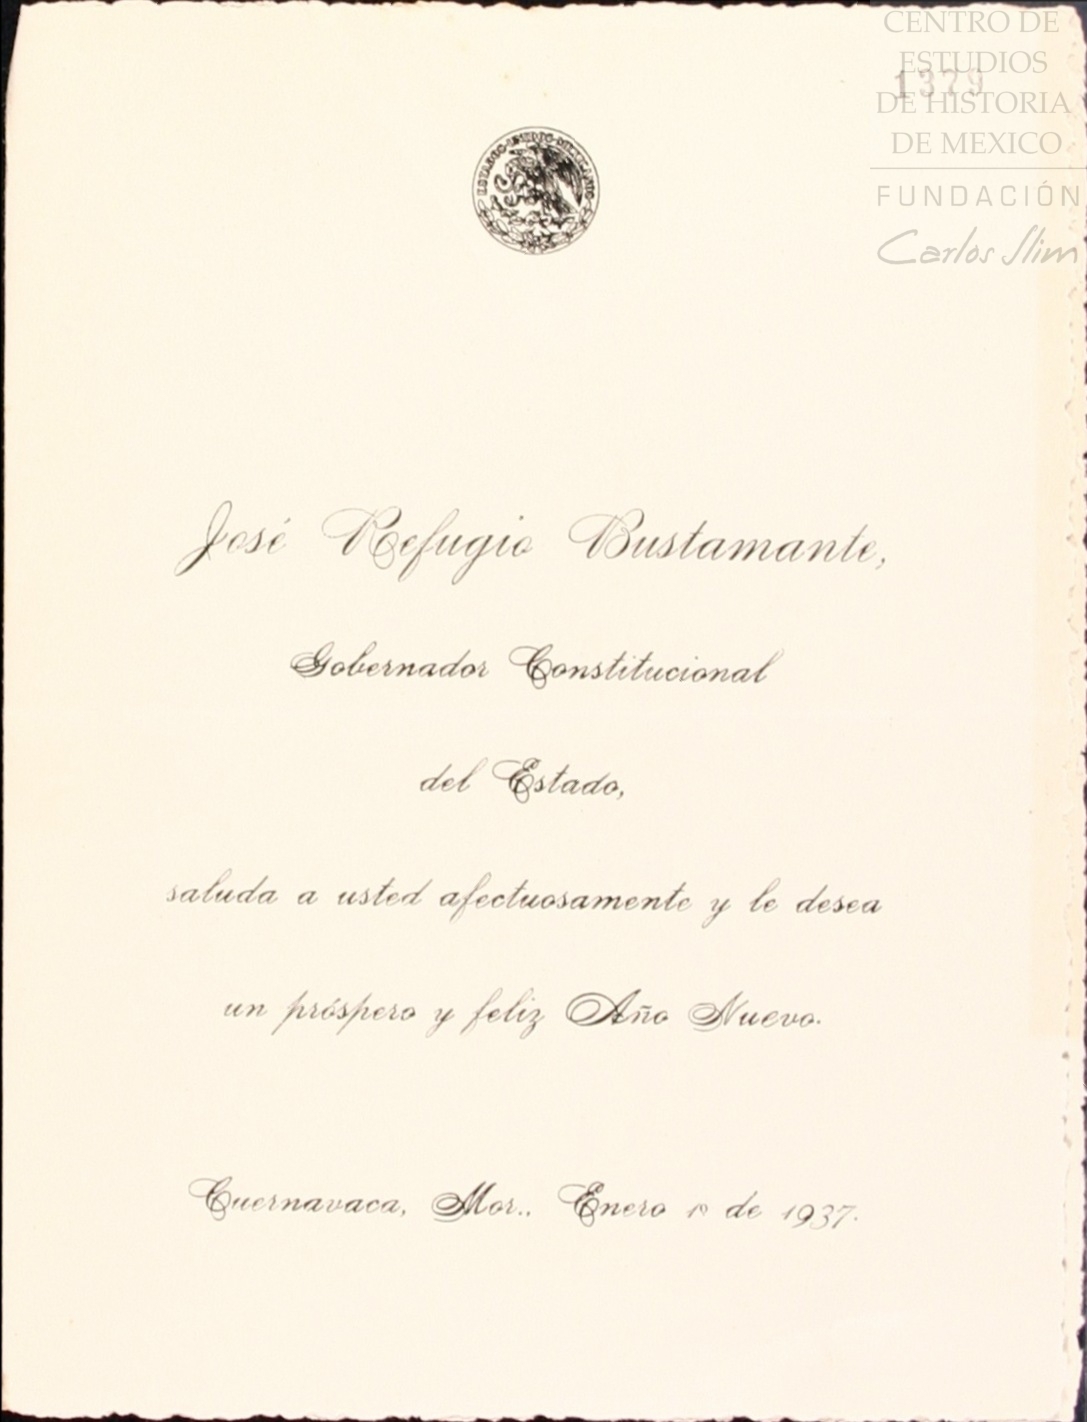 CENTRO DE
ESTUDIOS
1379
DE HISTORIA
DE MEXICO
FUNDACIÓN
Carlos Slim
ESTADOS UNIDOS MEXICANOS
José Refugio Bustamante,
Gobernador Constitucional
del Estado,
saluda a usted afectuosamente y le desea
un próspero y feliz Año Nuevo.
Cuernavaca, Mor., Enero 1º de 1937.